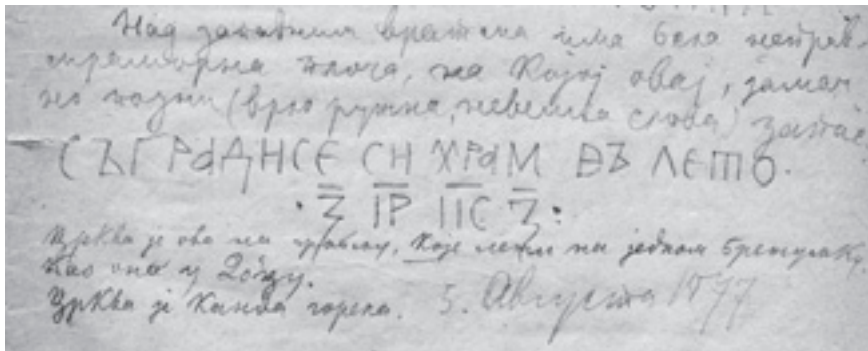 Над западним вратима има бела неправ
мраморна плоча, на којој овај, доман
но позни (врло ружна, невешта слова) запис
СЪГРАДИ СЕ СИ ХРАМ ВЪ ЛЕТО.
Црква је ова на гробљу, које лежи на једном брежуљку,
као она у
Црква је канда горела. 5. Августа 1877